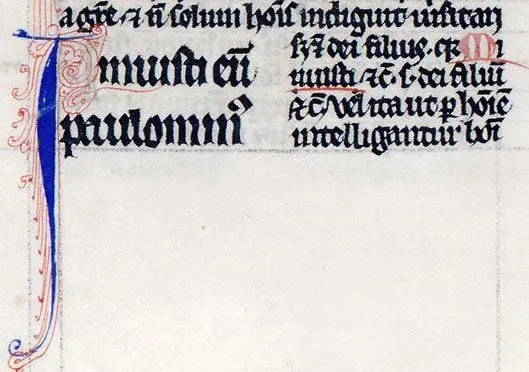 agr̄e ⁊ n̄ solum hoīs indiguit uisitari
inuisti eū
paulomin⁹
s; dei filius. qꝛ Mi
nuisti ⁊c̄. s. dei filiū
⁊c̄ Vel ita ut ꝑ hoīem
intelligantur hoī